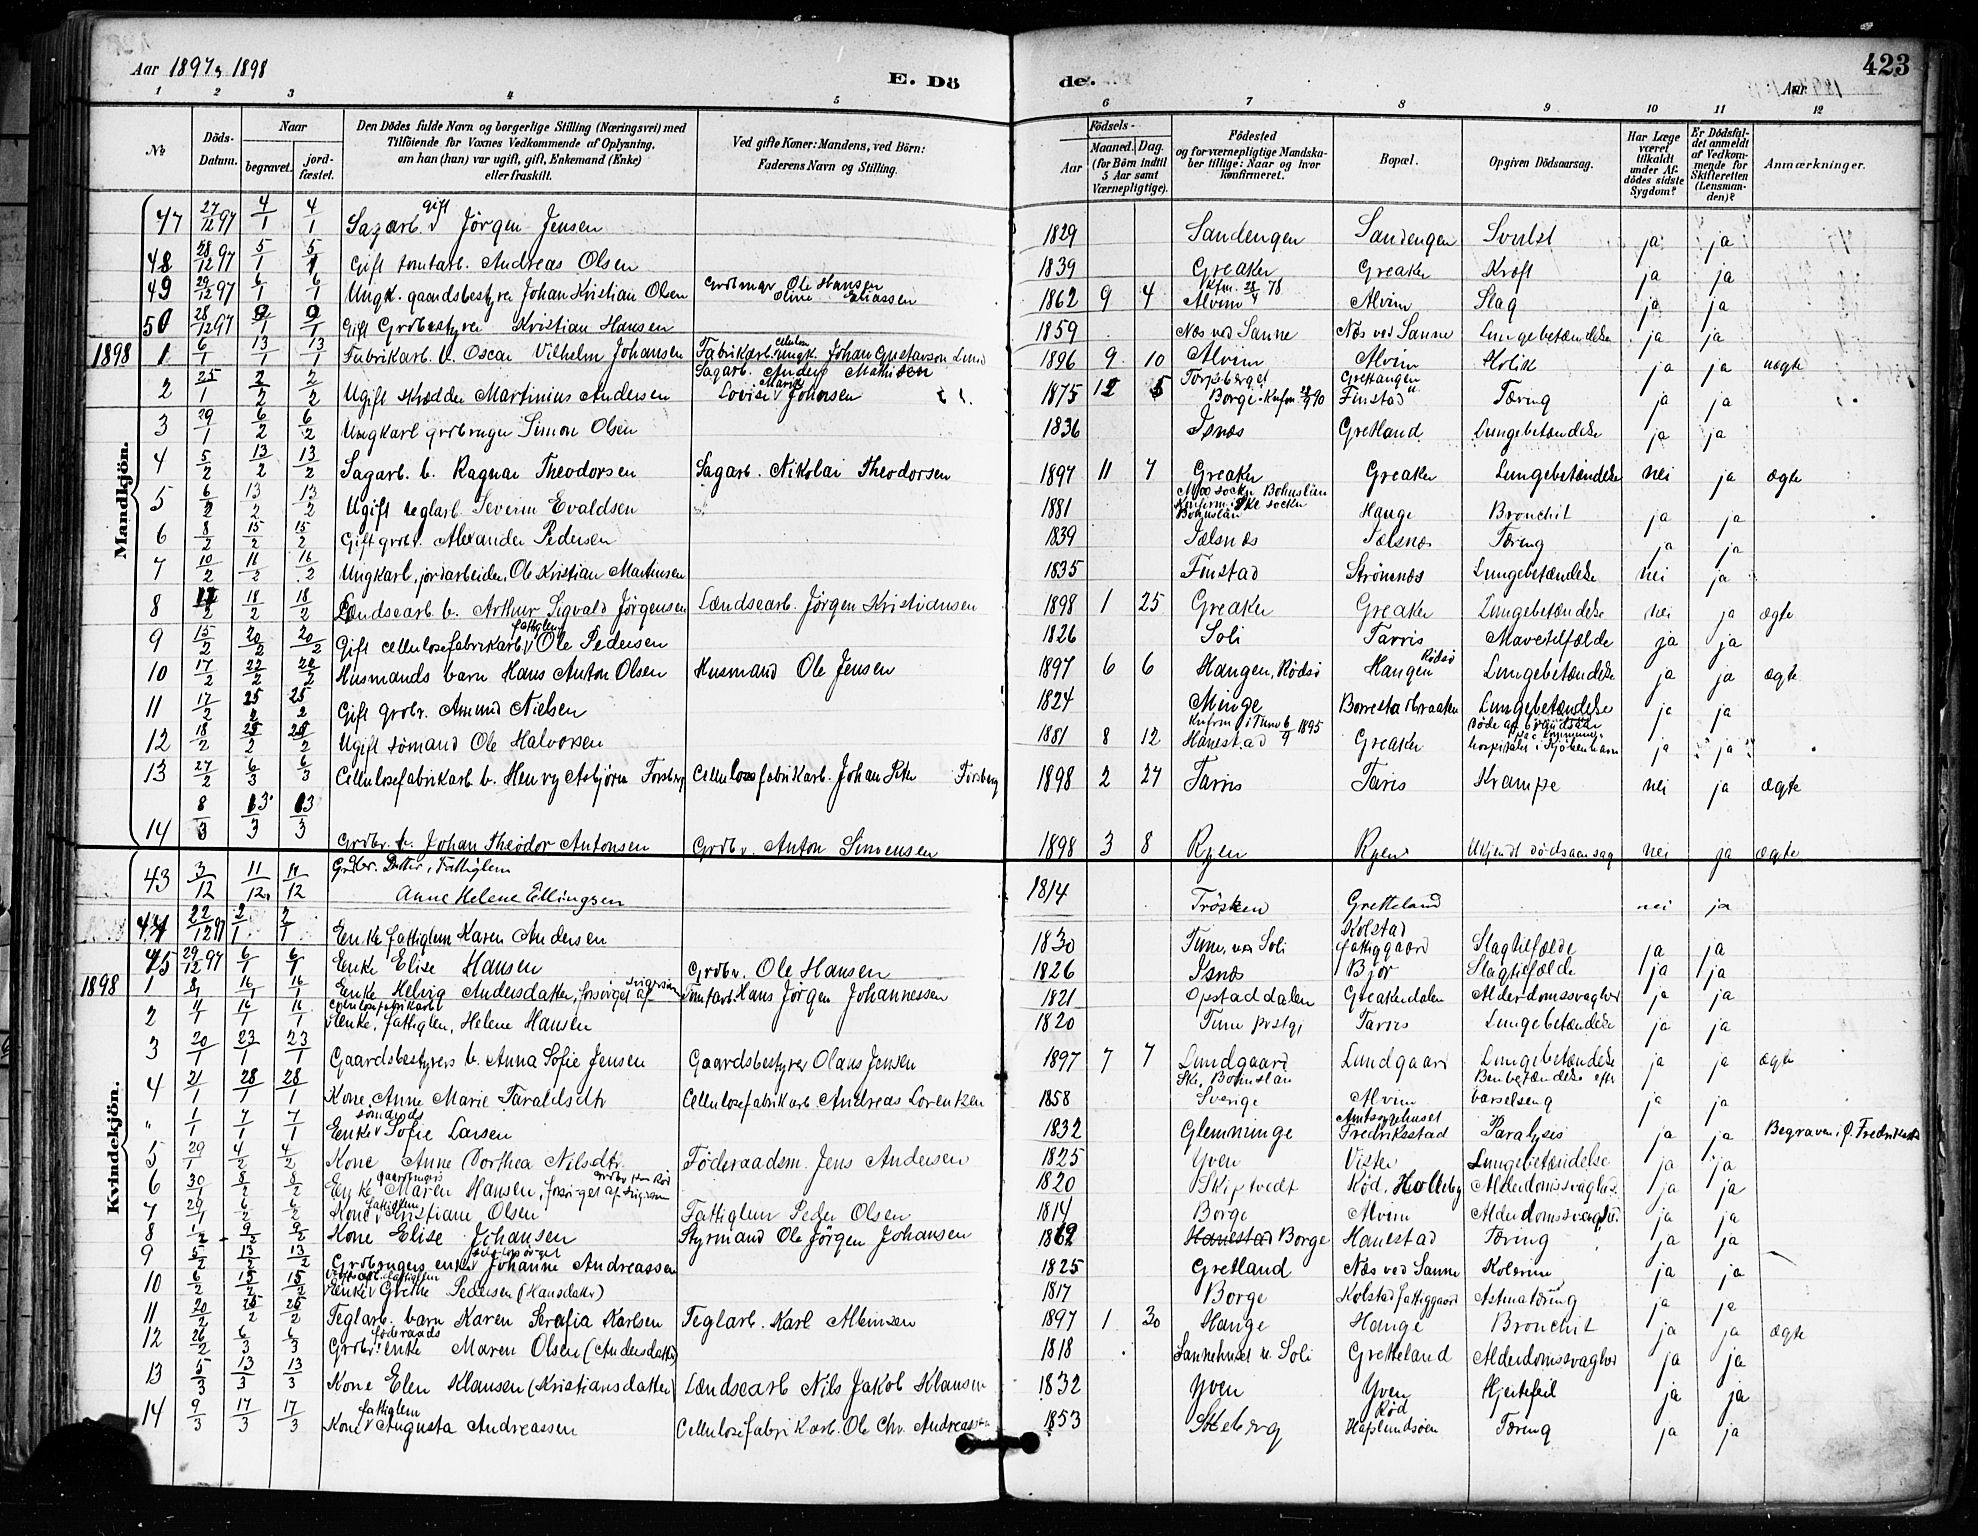 Aar 1897 & 1898
E. Dö
de.
423
Aar
1 2 3 4 5 6 7 8 9 10 11 12
No. Döds-Datum. Naar begravet. jordfæstet. Den Dödes fulde Navn og borgerlige Stilling (Næringsvei) med Tilföiende for Voxnes Vedkommende af Oplysning, om han (hun) var ugift, gift, Enkemand (Enke) eller fraskilt. Ved gifte Koner: Mandens, ved Börn: Faderens Navn og Stilling. Födsels- Aar Maaned. Dag. (for Börn indtil 5 Aar samt Værnepligtige). Födested og for værnepligtige Mandskaber tillige: Naar og hvor konfirmeret. Bopæl. Opgiven Dödsaarsag. Har Læge været tilkaldt under Afdödes sidste Sygdom? Er Dödsfaldet anmeldt af Vedkommende for Skifteretten (Lensmanden)? Anmærkninger.
Mandkjön.
47 27/12 97 4/1 4/1 Sagarb. gift Jörgen Jensen 1829 Sandengen Sandengen Svulst ja ja
48 28/12 97 5/1 5/1 Gift tomtarb. Andreas Olsen 1839 Greaker Greaker Kræft ja ja
49 29/12 97 6/1 6/1 Ungk. gaardsbestyrer Johan Kristian Olsen Ole Hansen Eliassen 1862 9 4 Alvim Alvim Slag ja ja
50 28/12 97 9/1 9/1 Gift Grdbestyrer Kristian Hansen 1859 Næs ved Sanne Næs ved Sanne Lungebetændelse ja ja
1898 1 6/1 13/1 13/1 Fabrikarb. b. Oscar Vilhelm Johansen Fabrikarb. ungk. Johan Gustavson Lund 1896 9 10 Alvim Alvim Kolik ja ja uægte
2 25/1 2/2 2/2 Ugift skrædder Martinius Andersen Sagarb. Anders Mathisen Lovise Marie Johansen 1875 12 5 Torpeberget Borge Finstad Tæring ja ja
3 29/1 6/2 6/2 Ungkarl grdbruger Simon Olsen 1836 Isnæs Gretland Lungebetændelse ja ja
4 5/2 13/2 13/2 Sagarb. b. Ragnar Theodorsen Sagarb. Nikolai Theodorsen 1897 11 7 Greaker Greaker Lungebetændelse nei ja ægte
5 6/2 13/2 13/2 Ugift teglarb. Severin Evaldsen 1881 Moo socken Bohuslän Konfirm. i Ske socken Bohuslän Hauge Bronchit ja ja
6 8/2 15/2 15/2 Gift grdbr. Alexander Pedersen 1839 Tælsnæs Tælsnæs Tæring ja ja
7 10/2 16/2 16/2 Ungkarl, jordarbeider, Ole Kristian Martinsen 1835 Finstad Strömnæs Lungebetændelse nei ja
8 18/2 18/2 Lændsearb. b. Arthur Sigvald Jörgensen Lændsearb. Jörgen Kristiansen 1898 1 25 Greaker Greaker Lungebetændelse nei ja ægte
9 15/2 20/2 20/2 Gift cellulosefabrikarb. fattiglem Ole Pedersen 1826 Soli Tarris Mavetilfælde ja ja
10 17/2 22/2 22/2 Husmands barn Hans Anton Olsen Husmand Ole Jensen 1897 6 6 Haugen, Rödsö Haugen Rödsö Lungebetændelse ja ja ægte
11 17/2 25/2 25/2 Gift grdbr. Amund Nielsen 1824 Minge Borrestadbraaten Lungebetændelse ja ja
12 18/2 25/2 25/2 Ugift sömand Ole Halvorsen 1881 8 12 Hanestad Greaker hospitalet i Kjöbenhavn ja ja
13 27/2 6/3 6/3 Cellulosefabrikarb. b. Henry Asbjörn Forsberg Cellulosefabrikarb. Johan Peter Forsberg 1898 2 27 Tarris Taris Krampe nei ja ægte
14 8/3 13/3 13/3 Grdbr. b. Johan Theodor Antonsen Grdbr. Anton Simensen 1898 3 8 Ryen Ryen Ukjendt dödsaarsag nei ja ægte
Kvindekjön.
43 3/12 11/12 11/12 Grdbr. Datter, Fattiglem Anne Helene Ellingsen 1814 Trösken Gretteland nei ja
44 22/12 97 2/1 2/1 Enke fattiglem Karen Andersen 1830 Tune, ved Soli Kolstad fattiggaard Slagtilfælde ja ja
45 29/12 97 6/1 6/1 Enke Elise Hansen Grdbr. Ole Hansen 1826 Isnæs Bjor Slagtilfælde ja ja
1898 1 8/1 16/1 16/1 Enke Helvig Andersdatter, forsörget af svigersön Tomtarb. Hans Jörgen Johannessen 1821 Opstaddalen Greakerdalen Alderdomssvaghed ja ja
2 11/1 16/1 16/1 cellulosefabrikarb. enke, fattiglem, Helene Hansen 1820 Tune prstgj Tarris Lungebetændelse ja ja
3 20/1 23/1 23/1 Gaardsbestyrers b. Anna Sofie Jensen Gaardsbestyrer Olaus Jensen 1897 7 7 Lundgaard Lundgaard Lungebetændelse ja ja ægte
4 21/1 28/1 28/1 Kone Anne Marie Taraldsdtr Cellulosefabrikarb. Andreas Lorentzen 1858 Ske, Bohuslän Sverige Alvim Benbetændelse efter barselseng ja ja
" 1/1 7/1 7/1 sömands Enke Sofie Larsen 1832 Glemminge Amtssygehuset Fredriksstad Paralysis ja ja Begraven i Ö. Fredriksstad
5 29/1 4/2 4/2 Kone Anne Dorthea Nilsdtr. Föderaadsm. Jens Andersen 1825 Yven Vister Lungebetændelse ja ja
6 30/1 8/2 8/2 Enke gaardmands Maren Hansen, forsörget af svigersön 1820 Skiptvedt Röd, Holleby Alderdomssvaghed ja ja
7 29/1 6/2 6/2 Kone fattiglem Kristiane Olsen Fattiglem Peder Olsen 1814 Borge Alvim Alderdomssvaghed ja ja
8 1/2 9/2 9/2 Kone Elise Johansen Styrmand Ole Jörgen Johansen 1862 Hanestad Borge Hanestad Tæring ja ja
9 5/2 13/2 13/2 Grdbrugers enke Johanne Andreassen 1825 Gretland Næs ved Sanne Kolerine ja ja
10 6/2 15/2 15/2 fattiglem enke Grethe Pedersen (Hansdatter) 1817 Borge Kolstad fattiggaard Astma Tæring ja ja
11 20/2 25/2 25/2 Teglarb. barn Karen Serafia Karlsen Teglarb. Karl Albinsen 1897 1 30 Hauge Hauge Bronchit ja ja ægte
12 26/2 6/3 6/3 Grdbr. föderaads enke Maren Olsen (Andersdatter) 1818 Sannehuset u. Soli Gretteland Alderdomssvaghed ja ja
13 5/3 13/3 13/3 Kone Elen Klausen (Kristiansdatter) Lændsearb Nils Jakob Klausen 1832 Yven Yven Hjertefeil ja ja
14 9/3 17/3 17/3 Kone fattiglem Augusta Andreassen Cellulosefabrikarb. Ole Chr. Andreassen 1853 Skeberg Röd Hafslundsöen Tæring ja ja